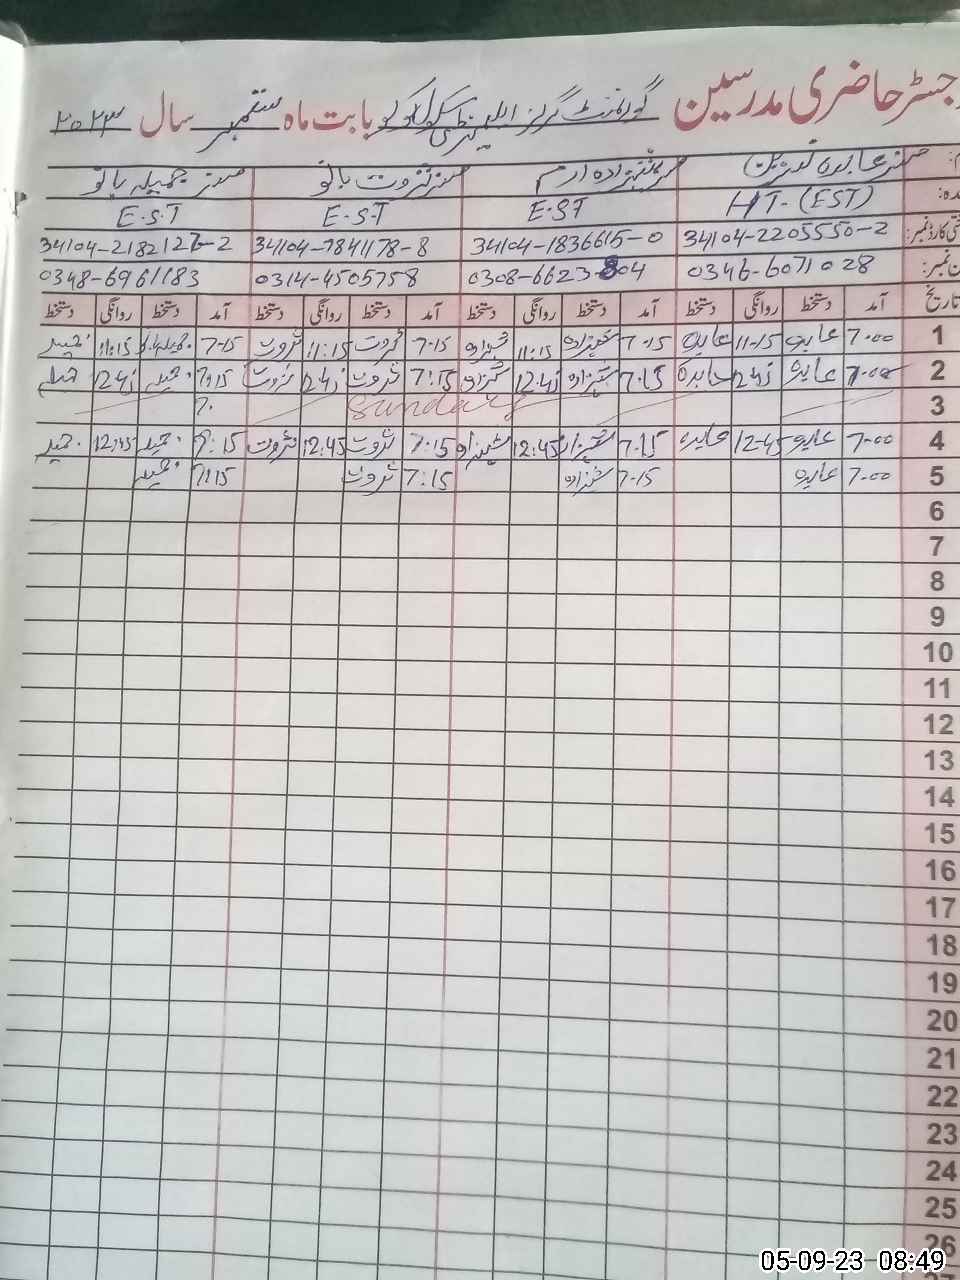 رجسٹر حاضری مدرسین گورنمنٹ گرلز ایلیمنٹری سکول کولو بابت ماہ ستمبر سال ۲۰۲۳
مسز عابدہ نسرین مسز شہزادہ ارم مسز ثروت بانو مسز جمیلہ بانو
HT-(EST) EST E.S.T E.S.T
34104-2205550-2 34104-1836615-0 34104-7841178-8 34104-2182127-2
0346-6071028 0308-6623804 0314-4505758 0348-6961183
تاریخ آمد دستخط روانگی دستخط آمد دستخط روانگی دستخط آمد دستخط روانگی دستخط آمد دستخط روانگی دستخط
1 7-00 عابدہ 11-15 عابدہ 7-15 شہزادہ 11:15 شہزادہ 7-15 ثروت 11:15 ثروت 7-15 جمیلہ 11:15 جمیلہ
2 7-00 عابدہ 12:45 عابدہ 7.15 شہزادہ 12:45 شہزادہ 7:15 ثروت 12:45 ثروت 7:15 جمیلہ 12:45 جمیلہ
3 Sunday
4 7-00 عابدہ 12-45 عابدہ 7.15 شہزادہ 12:45 شہزادہ 7:15 ثروت 12:45 ثروت 7:15 جمیلہ 12:45 جمیلہ
5 7-00 عابدہ 7-15 شہزادہ 7:15 ثروت 7:15 جمیلہ
6
7
8
9
10
11
12
13
14
15
16
17
18
19
20
21
22
23
24
25
26
05-09-23 08:49